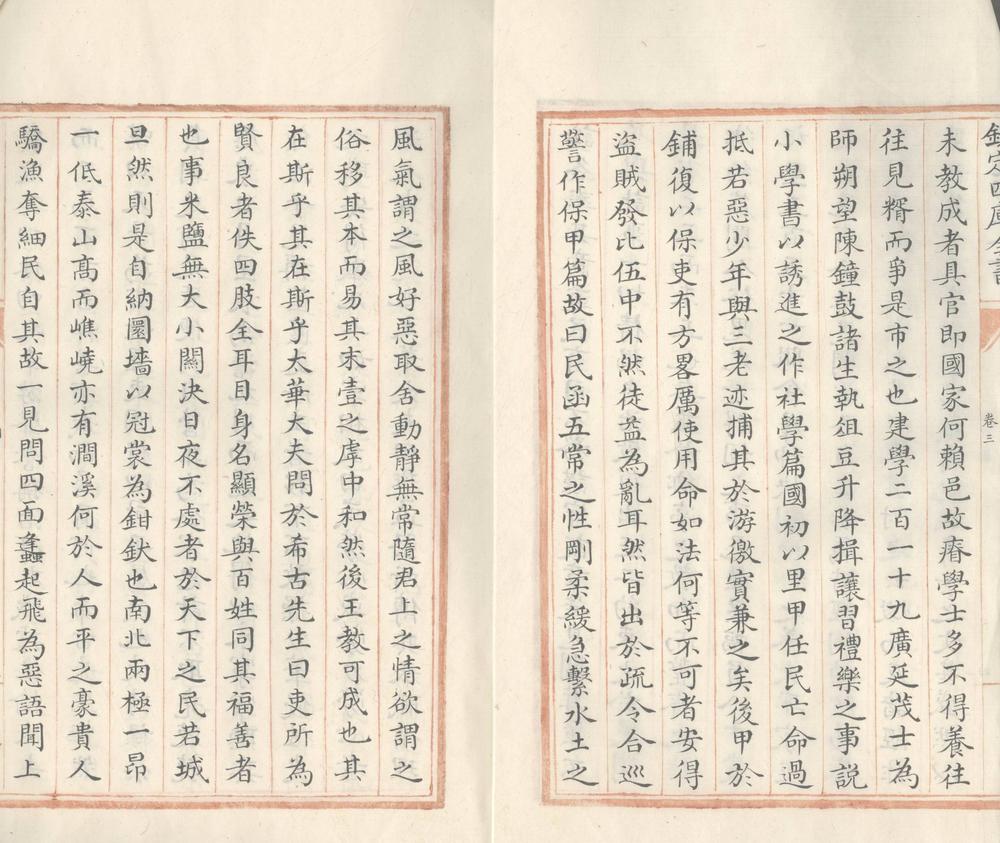 欽定四庫全書
卷三
未教成者具官即國家何賴邑故瘠學士多不得養往
往見糈而爭是市之也建學二百一十九廣延茂士為
師朔望陳鐘鼓諸生執俎豆升降揖讓習禮樂之事說
小學書以誘進之作社學篇國初以里甲任民亡命過
抵若惡少年與三老迹捕其於游徼實兼之矣後甲於
鋪復以保吏有方畧厲使用命如法何等不可者安得
盜賊發比伍中不然徒益為亂耳然皆出於疏令合巡
警作保甲篇故曰民函五常之性剛柔緩急繫水土之
風氣謂之風好惡取舍動靜無常隨君上之情欲謂之
俗移其本而易其末壹之虖中和然後王教可成也其
在斯乎其在斯乎太華大夫問於希古先生曰吏所為
賢良者佚四肢全耳目身名顯榮與百姓同其福善者
也事米鹽無大小關決日夜不處者於天下之民若城
旦然則是自納圜墻以冠裳為鉗釱也南北兩極一昂
一低泰山高而嶕嶢亦有澗溪何於人而平之豪貴人
驕漁奪細民自其故一見問四面蠭起飛為惡語聞上